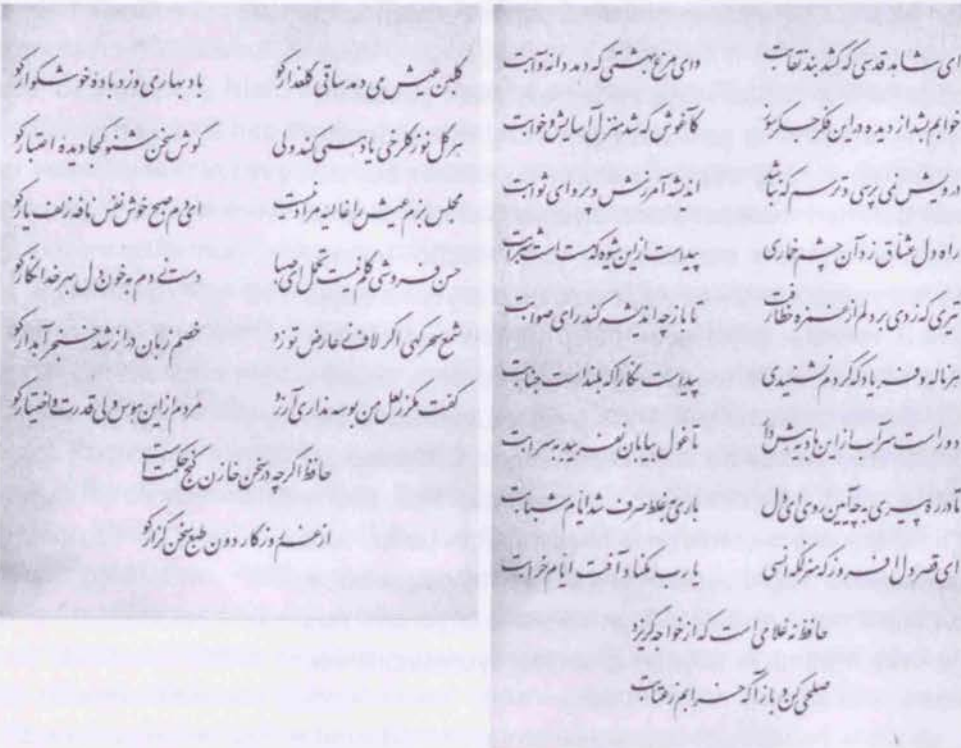 ای شاهد قدسی که کشد بند نقابت وای مرغ بهشتی که دهد دانه و آبت
خوابم بشد از دیده در این فکر جگرسوز کاغوش که شد منزل آسایش و خوابت
درویش نمی پرسی و ترسم که نباشد اندیشه آمرزش و پروای ثوابت
راه دل عشاق زد آن چشم خماری پیداست از این شیوه که مست است شرابت
تیری که زدی بر دلم از غمزه خطا رفت تا باز چه اندیشه کند رای صوابت
هر ناله و فریاد که کردم نشنیدی پیداست نگارا که بلند است جنابت
دور است سر آب از این بادیه هش دار تا غول بیابان نفریبد به سرابت
تا در ره پیری به چه آیین روی ای دل باری به غلط صرف شد ایام شبابت
ای قصر دل افروز که منزلگه انسی یا رب مکناد آفت ایام خرابت
حافظ نه غلامی است که از خواجه گریزد
صلحی کن و باز آ که خرابم ز عتابت
گلبن عیش می دمد ساقی گلعذار کو باد بهار می وزد باده خوشگوار کو
هر گل نو ز گلرخی یاد همی کند ولی گوش سخن شنو کجا دیده اعتبار کو
مجلس بزم عیش را غالیه مراد نیست ای دم صبح خوش نفس نافه زلف یار کو
حسن فروشی گلم نیست تحمل ای صبا دست زدم به خون دل بهر خدا نگار کو
شمع سحرگهی اگر لاف ز عارض تو زد خصم زبان دراز شد خنجر آبدار کو
گفت مگر ز لعل من بوسه نداری آرزو مردم از این هوس ولی قدرت و اختیار کو
حافظ اگر چه در سخن خازن گنج حکمت است
از غم روزگار دون طبع سخن گزار کو